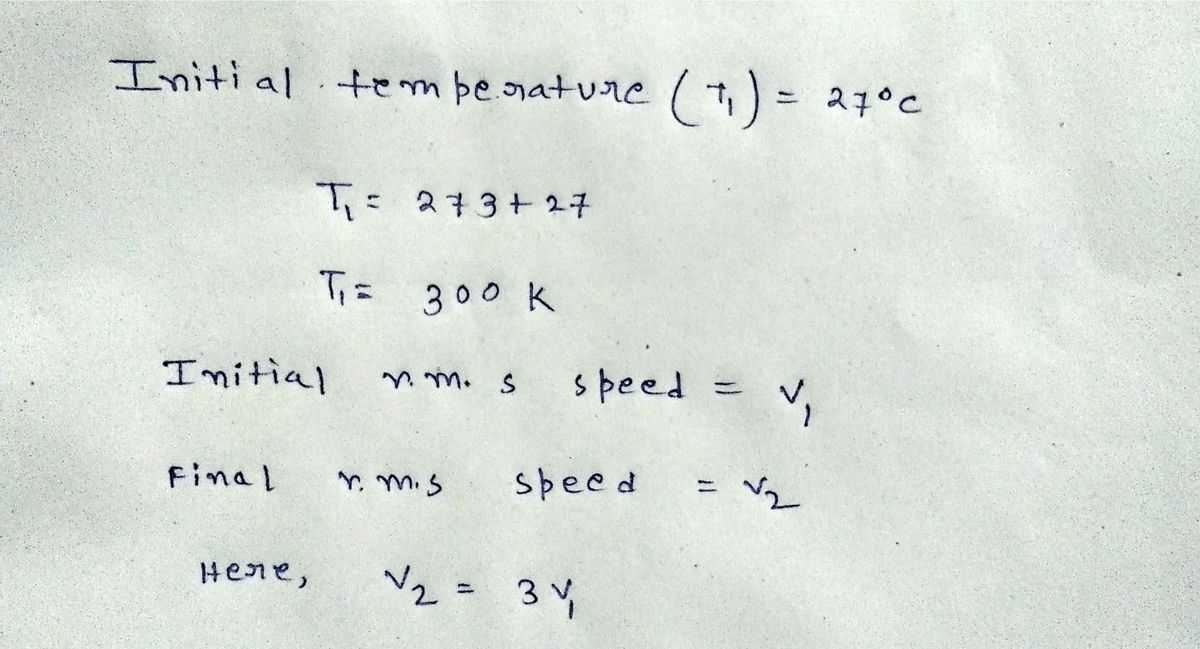 Initial temperature (T₁) = 27°C
T₁ = 273 + 27
T₁ = 300 K
Initial r.m.s speed = v₁
Final r.m.s speed = v₂
Here, v₂ = 3 v₁